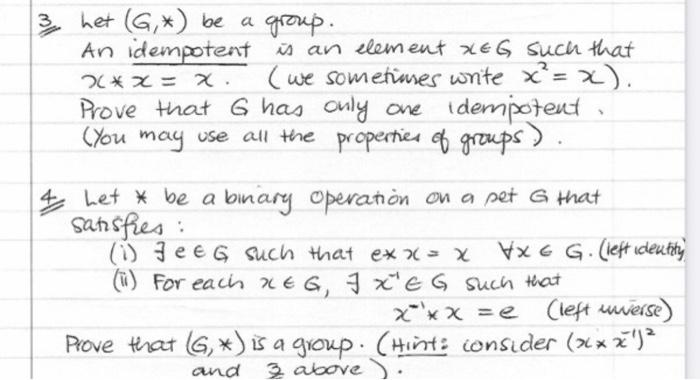 3 Let (G,*) be a group.
An idempotent is an element x∈G such that
x*x = x. (we sometimes write x²=x).
Prove that G has only one idempotent.
(You may use all the properties of groups).
4 Let * be a binary operation on a set G that
satisfies :
(i) ∃e∈G such that e*x = x ∀x∈G. (left identity
(ii) For each x∈G, ∃ x⁻¹∈G such that
x⁻¹*x = e (left inverse)
Prove that (G,*) is a group. (Hint: consider (x*x⁻¹)²
and 3 above).